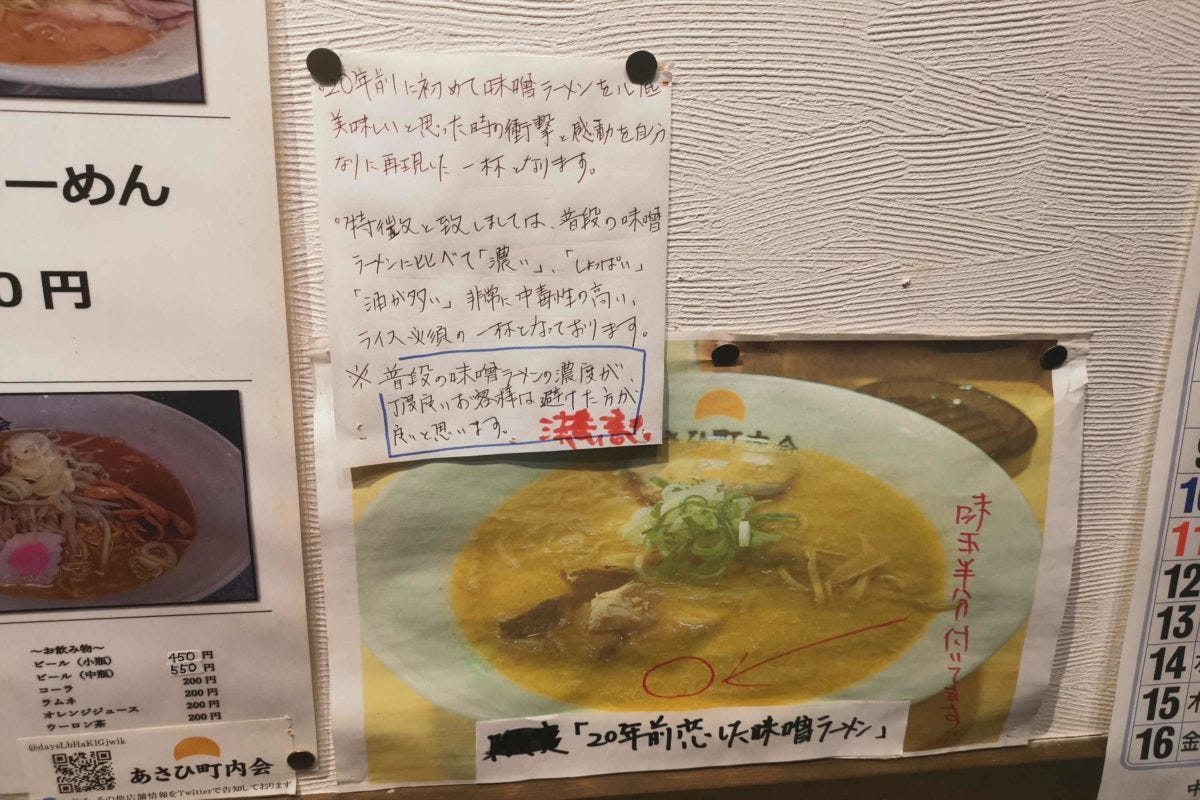 ーめん
0 円
～お飲み物～
ビール（小瓶） 450 円
ビール（中瓶） 550 円
コーラ 200 円
ラムネ 200 円
オレンジジュース 200 円
ウーロン茶 200 円
@daysLbHaKlGjwik
あさひ町内会
その他店舗情報をTwitterで告知しております
°20年前に初めて味噌ラーメンを心底
美味しいと思った時の衝撃と感動を自分
なりに再現した一杯となります。
°特徴と致しましては、普段の味噌
ラーメンにくらべて「濃い」、「しょっぱい」
「油が多い」非常に中毒性の高い、
ライス必須の一杯となっております。
※ 普段の味噌ラーメンの濃度が、
丁度良いお客様は避けた方が
良いと思います。 注意!
あさひ町内会
味玉半分付いてます
「20年前恋した味噌ラーメン」
10
11
12
13
14
15
16 金